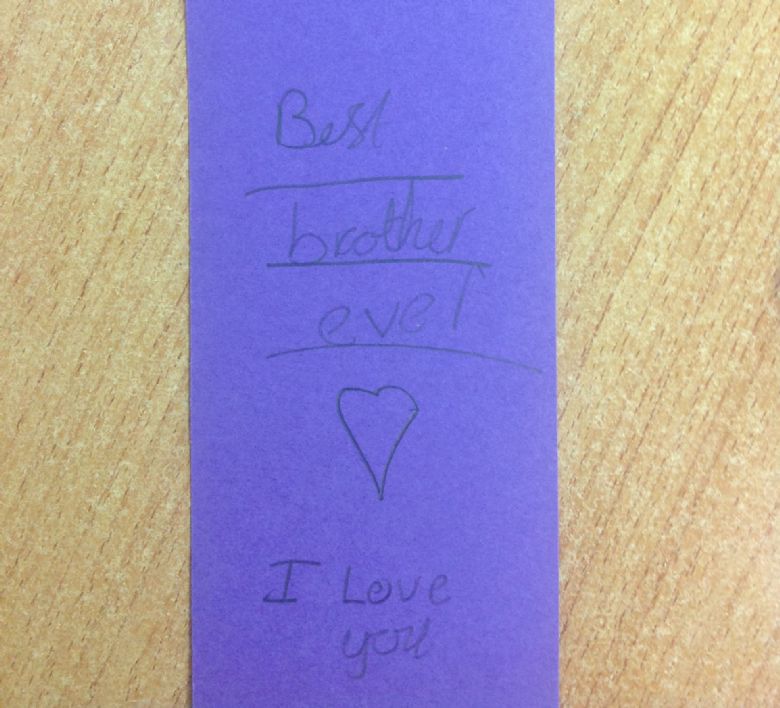 Best
brother
ever
I Love
you